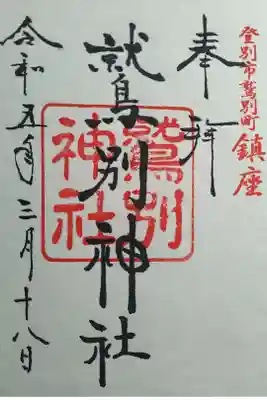 登別市鷲別町 鎮座
奉拝
鷲別神社
鷲別
神社
令和五年三月十八日